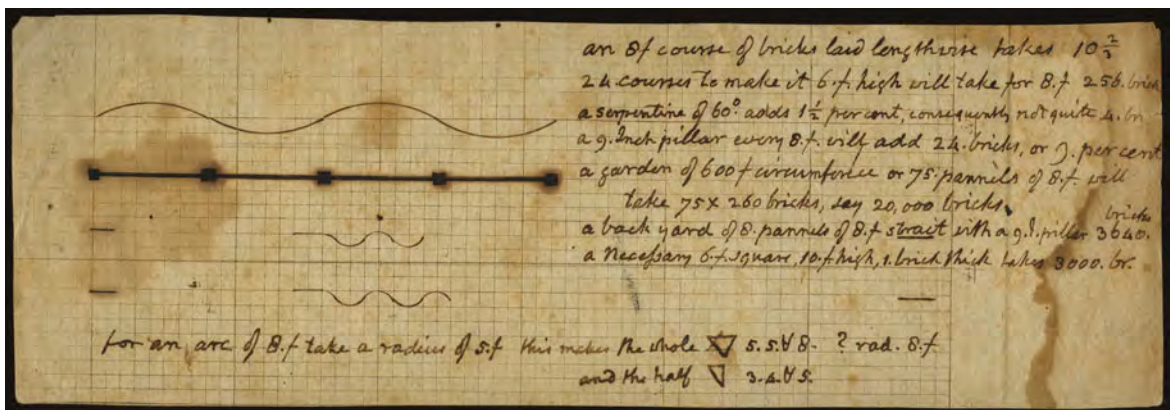 an 8f course of bricks laid lengthwise takes 10 2/3
24 courses to make it 6.f. high will take for 8.f 256. brick
a serpentine of 60°. adds 1 1/2 per cent, consequently not quite 4. br
a 9. Inch pillar every 8.f. will add 24. bricks, or 9. per cent
a garden of 600f circumference or 75. pannels of 8.f. will
take 75 x 260 bricks, say 20,000 bricks.
a back yard of 8. pannels of 8.f strait with a 9.I. pillar 3640. bricks
a Necessary 6.f. square, 10.f high, 1. brick thick takes 3000. br.
for an arc of 8.f take a radius of 5.f this makes the whole 5.5.&8. ? rad. 8.f
and the half 3.4.&5.